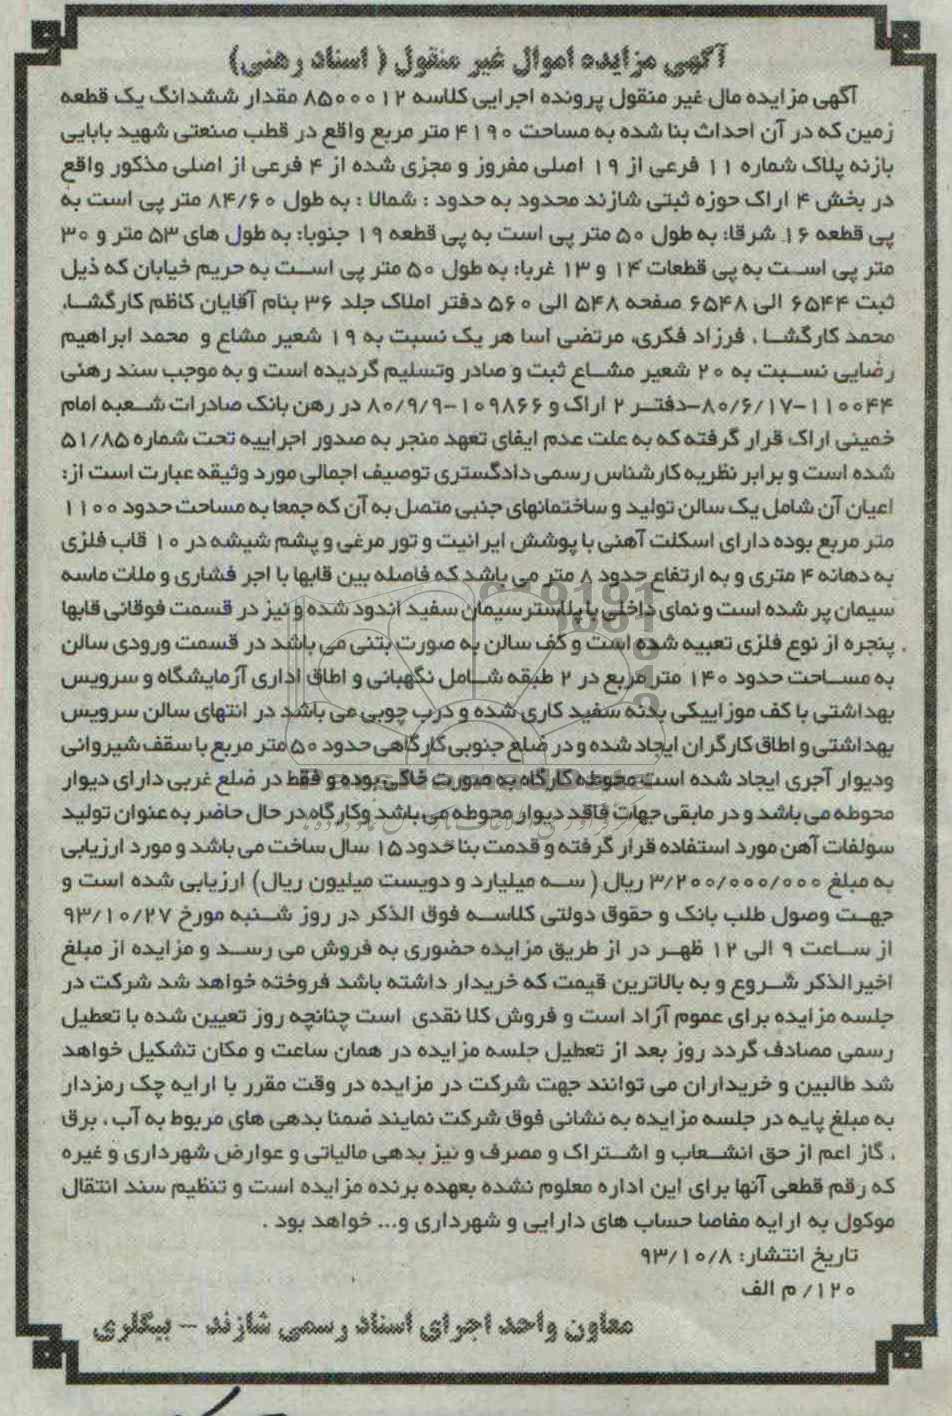 آگهی مزایده اموال غیر منقول ( اسناد رهنی)
آگهی مزایده مال غیر منقول پرونده اجرایی کلاسه ۸۵۰۰۰۱۲ مقدار ششدانگ یک قطعه
زمین که در آن احداث بنا شده به مساحت ۴۱۹۰ متر مربع واقع در قطب صنعتی شهید بابایی
بازنه پلاک شماره ۱۱ فرعی از ۱۹ اصلی مفروز و مجزی شده از ۴ فرعی از اصلی مذکور واقع
در بخش ۴ اراک حوزه ثبتی شازند محدود به حدود : شمالا : به طول ۸۴/۶۰ متر پی است به
پی قطعه ۱۶ شرقا: به طول ۵۰ متر پی است به پی قطعه ۱۹ جنوبا: به طول های ۵۳ متر و ۳۰
متر پی است به پی قطعات ۱۴ و ۱۳ غربا: به طول ۵۰ متر پی است به حریم خیابان که ذیل
ثبت ۶۵۴۴ الی ۶۵۴۸ صفحه ۵۴۸ الی ۵۶۰ دفتر املاک جلد ۳۶ بنام آقایان کاظم کارگشا،
محمد کارگشا ، فرزاد فکری، مرتضی اسا هر یک نسبت به ۱۹ شعیر مشاع و محمد ابراهیم
رضایی نسبت به ۲۰ شعیر مشاع ثبت و صادر وتسلیم گردیده است و به موجب سند رهنی
۱۱۰۰۴۴-۸۰/۶/۱۷-دفتر ۲ اراک و ۱۰۹۸۶۶-۸۰/۹/۹ در رهن بانک صادرات شعبه امام
خمینی اراک قرار گرفته که به علت عدم ایفای تعهد منجر به صدور اجراییه تحت شماره ۵۱/۸۵
شده است و برابر نظریه کارشناس رسمی دادگستری توصیف اجمالی مورد وثیقه عبارت است از:
اعیان آن شامل یک سالن تولید و ساختمانهای جنبی متصل به آن که جمعا به مساحت حدود ۱۱۰۰
متر مربع بوده دارای اسکلت آهنی با پوشش ایرانیت و تور مرغی و پشم شیشه در ۱۰ قاب فلزی
به دهانه ۴ متری و به ارتفاع حدود ۸ متر می باشد که فاصله بین قابها با اجر فشاری و ملات ماسه
سیمان پر شده است و نمای داخلی با پلاستر سیمان سفید اندود شده و نیز در قسمت فوقانی قابها
پنجره از نوع فلزی تعبیه شده است و کف سالن به صورت بتنی می باشد در قسمت ورودی سالن
به مساحت حدود ۱۴۰ متر مربع در ۲ طبقه شامل نگهبانی و اطاق اداری آزمایشگاه و سرویس
بهداشتی با کف موزاییکی بدنه سفید کاری شده و درب چوبی می باشد در انتهای سالن سرویس
بهداشتی و اطاق کارگران ایجاد شده و در ضلع جنوبی کارگاهی حدود ۵۰ متر مربع با سقف شیروانی
ودیوار آجری ایجاد شده است محوطه کارگاه به صورت خاکی بوده و فقط در ضلع غربی دارای دیوار
محوطه می باشد و در مابقی جهات فاقد دیوار محوطه می باشد وکارگاه در حال حاضر به عنوان تولید
سولفات آهن مورد استفاده قرار گرفته و قدمت بنا حدود ۱۵ سال ساخت می باشد و مورد ارزیابی
به مبلغ ۳/۲۰۰/۰۰۰/۰۰۰ ریال ( سه میلیارد و دویست میلیون ریال) ارزیابی شده است و
جهت وصول طلب بانک و حقوق دولتی کلاسه فوق الذکر در روز شنبه مورخ ۹۳/۱۰/۲۷
از ساعت ۹ الی ۱۲ ظهر در از طریق مزایده حضوری به فروش می رسد و مزایده از مبلغ
اخیرالذکر شروع و به بالاترین قیمت که خریدار داشته باشد فروخته خواهد شد شرکت در
جلسه مزایده برای عموم آزاد است و فروش کلا نقدی است چنانچه روز تعیین شده با تعطیل
رسمی مصادف گردد روز بعد از تعطیل جلسه مزایده در همان ساعت و مکان تشکیل خواهد
شد طالبین و خریداران می توانند جهت شرکت در مزایده در وقت مقرر با ارایه چک رمزدار
به مبلغ پایه در جلسه مزایده به نشانی فوق شرکت نمایند ضمنا بدهی های مربوط به آب ، برق
، گاز اعم از حق انشعاب و اشتراک و مصرف و نیز بدهی مالیاتی و عوارض شهرداری و غیره
که رقم قطعی آنها برای این اداره معلوم نشده بعهده برنده مزایده است و تنظیم سند انتقال
موکول به ارایه مفاصا حساب های دارایی و شهرداری و... خواهد بود .
تاریخ انتشار: ۹۳/۱۰/۸
۱۲۰/ م الف
معاون واحد اجرای اسناد رسمی شازند – بیگلری